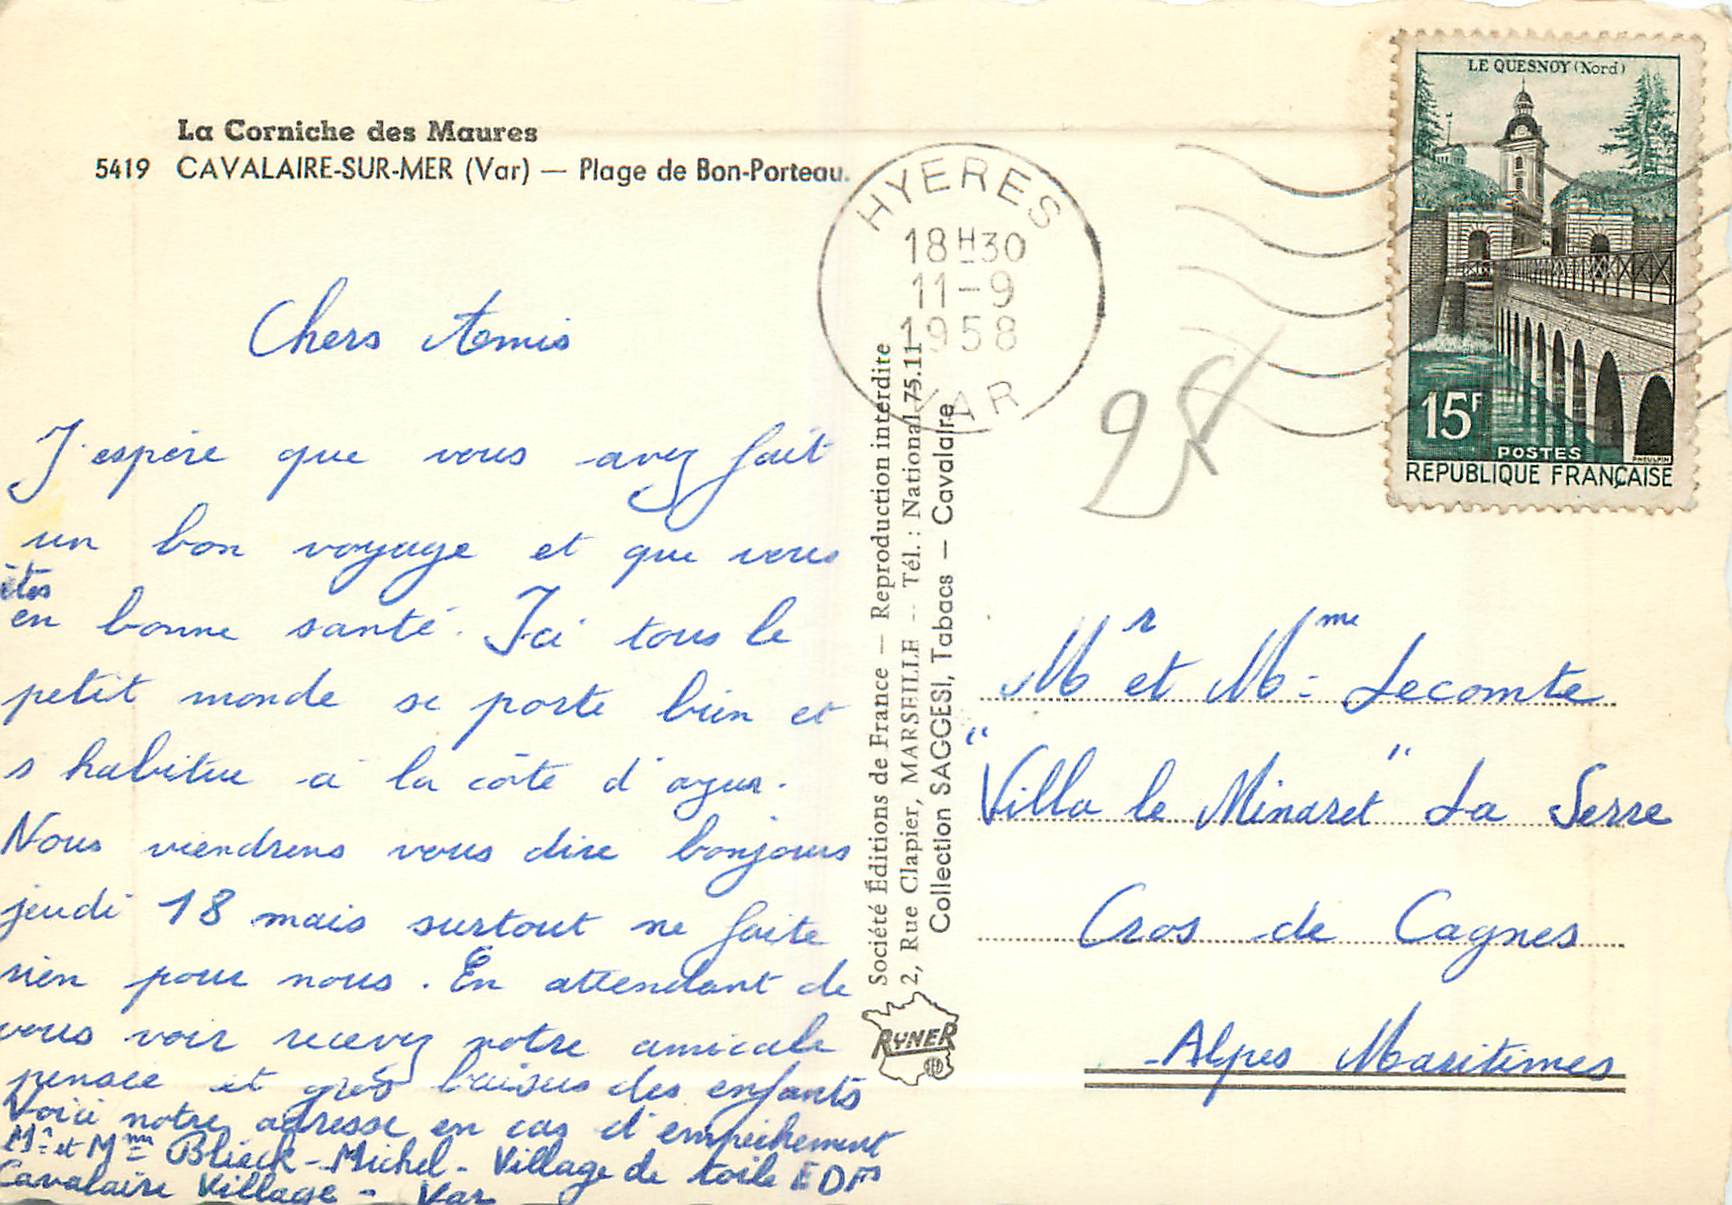 La Corniche des Maures
5419 CAVALAIRE-SUR-MER (Var) — Plage de Bon-Porteau.
HYERES
18H30
11-9
1958
VAR
LE QUESNOY (Nord)
15F
POSTES
PHEULPIN
REPUBLIQUE FRANÇAISE
28
Chers Amis
J'espère que vous avez fait
un bon voyage et que vous
êtes
en bonne santé. Ici tous le
petit monde se porte bien et
s habitue à la côte d'azur.
Nous viendrons vous dire bonjours
jeudi 18 mais surtout ne faite
rien pour nous. En attendant de
vous voir recevez notre amicale
pensée et gros baisers des enfants
Voici notre adresse en cas d'empêchement
Mr et Mme Blieck-Michel - Village de toile EDF
Cavalaire Village - Var
Société Éditions de France — Reproduction interdite
2, Rue Clapier, MARSEILLE -- Tél. : National 75.11
Collection SAGGESI, Tabacs — Cavalaire
RYNER
Mr et Mme Lecomte
"Villa le Minaret" La Serre
Cros de Cagnes
Alpes Maritimes